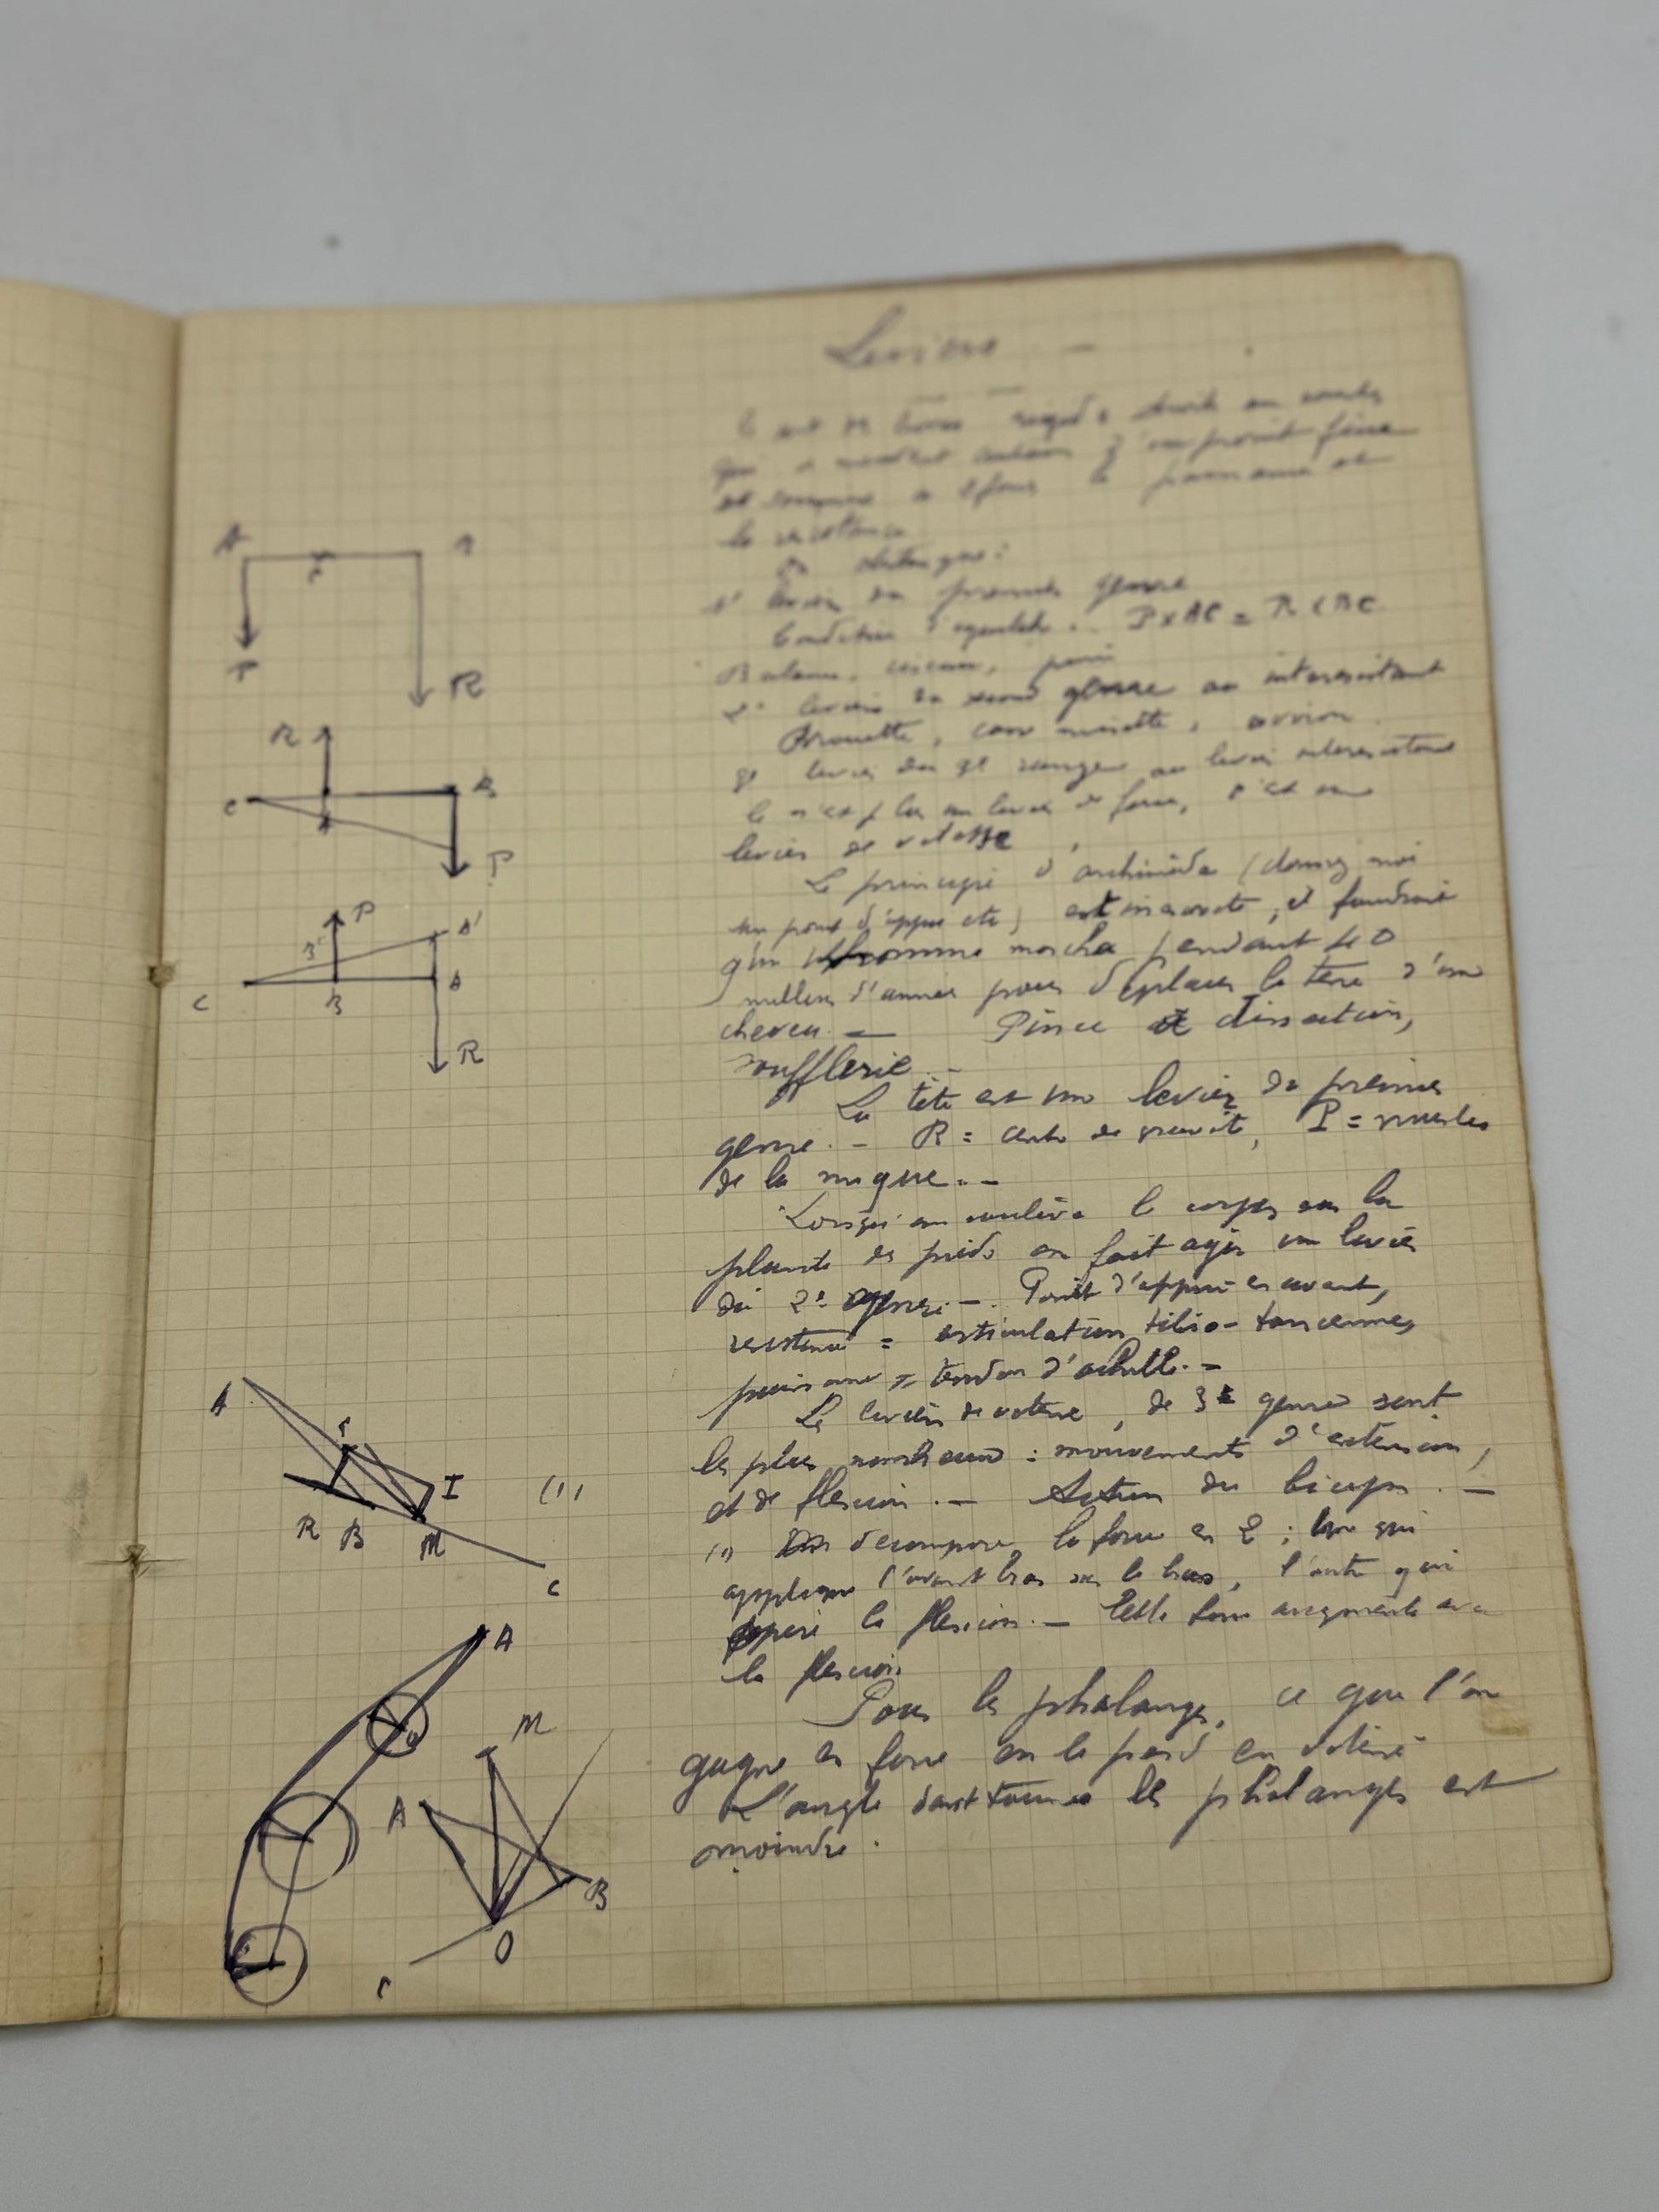 Leviers -
Ce sont des barres rigides droites ou courbes
qui se meuvent autour d'un point fixe
et soumise à 2 forces la puissance et
la resistance
On distingue :
1° levier du premier genre
Condition d'equilibre. P x AC = R x BC
Balance, ciseaux,
2° leviers du second genre ou interresistant
Brouette, casse noisette, aviron
3° levier du 3e genre ou levier
Ce n'est plus un levier de force, c'est un
levier de vitesse
Le principe d'archimède (donnez moi
un point d'appui etc) est inexacte, il faudrait
qu'un homme marcha pendant 40
millions d'annee pour déplacer la terre d'un
cheveu. — Pince à dissection,
soufflerie. -
La tête est un levier du premier
genre. - R = centre de gravité, P = muscles
de la nuque. -
Lorsqu'on soulève le corps sur la
plante des pieds on fait agir un levier
du 2e genre. - Point d'appui en avant,
resistance = articulation tibio-tarsienne,
puissance = tendon d'achille. -
Les leviers de vitesse, de 3e genre sont
les plus nombreux : mouvements d'extension,
et de flexion. - Action du biceps. -
(1) On decompose la force en 2 ; l'une qui
applique l'avant bras sur le bras, l'autre qui
opère la flexion. - Cette force augmente avec
la flexion
Pour les phalanges, ce que l'on
gagne en force on le perd en vitesse
L'angle dont tourne les phalanges est
moindre.
A
C
B
P
R
R
C
A
B
P
P
B'
A'
C
B
A
R
A
I
(1)
R
B
M
C
A
M
A
B
O
C